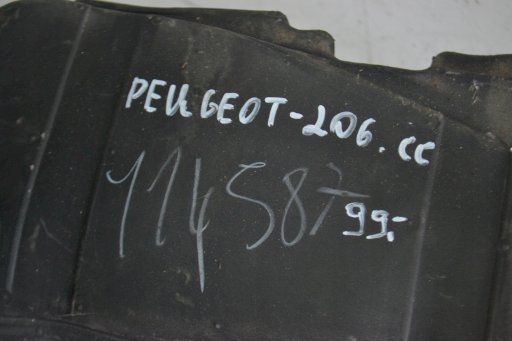 PEUGEOT-206.CC
114587
99.-